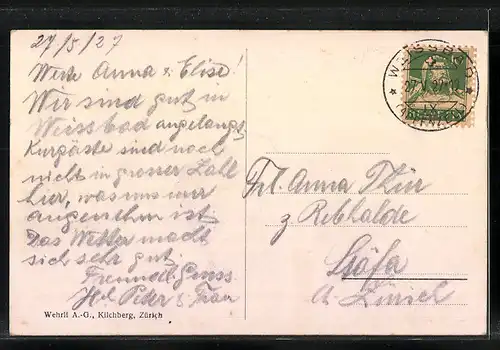 27/5/27
Werte Anna & Elise!
Wir sind gut in
Weissbad angelangt
Kurgäste sind noch
nicht in grosser Zahl
hier, was uns nur
angenehm ist.
Das Wetter macht
sich sehr gut.
Freundl. Gruss
Peter & Frau
Wehrli A.-G., Kilchberg, Zürich
WEISSBAD
HELVETIA
Frl. Anna
z Rebhalde
Stäfa
Zürich